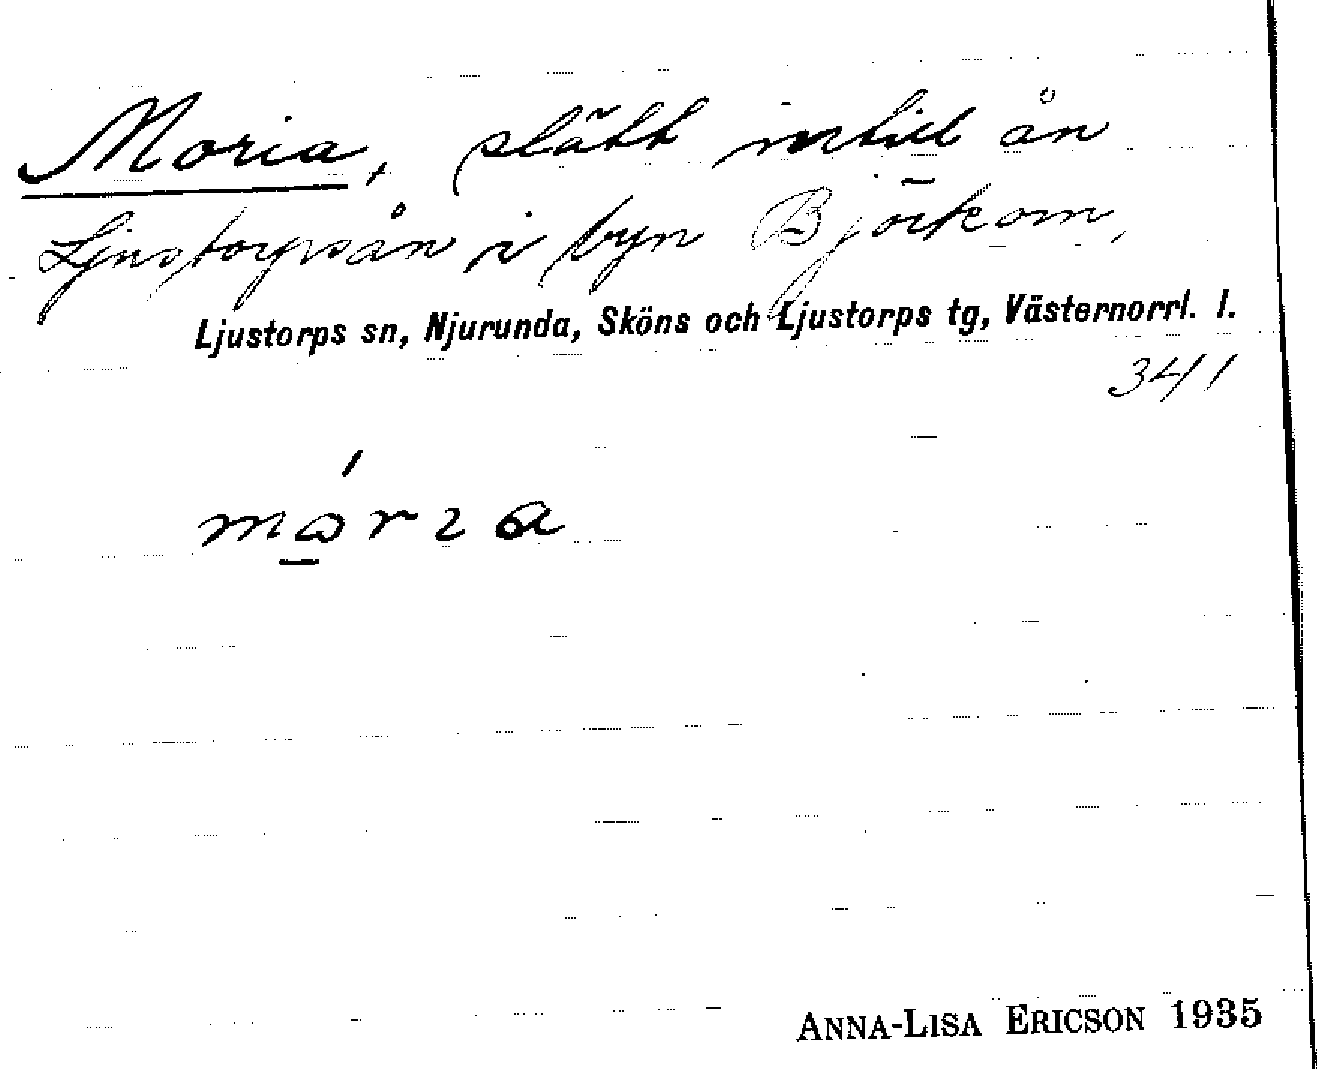 Moria, slätt intill ån
Ljustorpsån i byn Björkom,
Ljustorps sn, Njurunda, Sköns och Ljustorps tg, Västernorrl. l.
341
ANNA-LISA ERICSON 1935